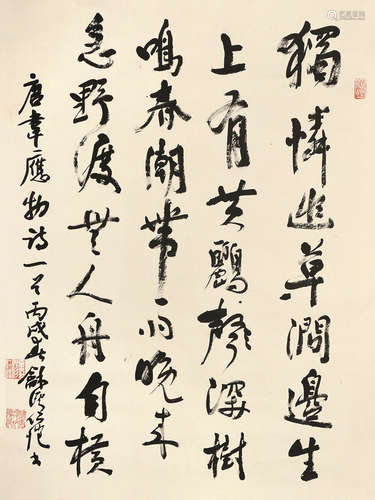 獨憐幽草澗邊生
上有黄鸝聲深樹
鳴春潮帶雨晚来
急野渡無人舟自横
唐韋應物诗一首丙戌书